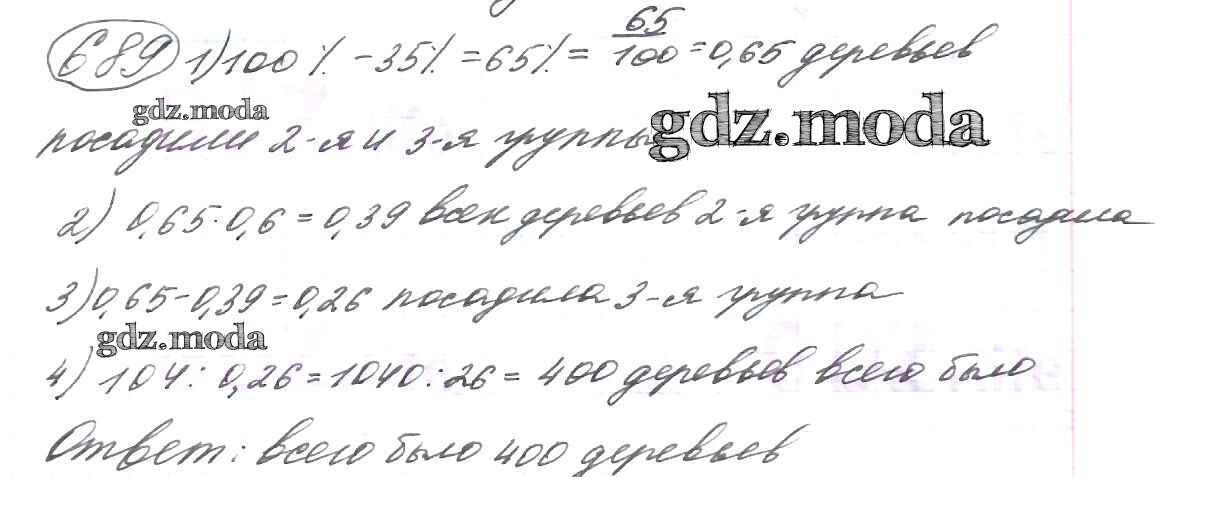 689 1) 100 % - 35% = 65% = 65/100 = 0,65 деревьев
gdz.moda
gdz.moda
посадили 2-я и 3-я группы
2) 0,65 · 0,6 = 0,39 всех деревьев 2-я группа посадила
3) 0,65 - 0,39 = 0,26 посадила 3-я группа
gdz.moda
4) 104 : 0,26 = 1040 : 26 = 400 деревьев всего было
Ответ: всего было 400 деревьев